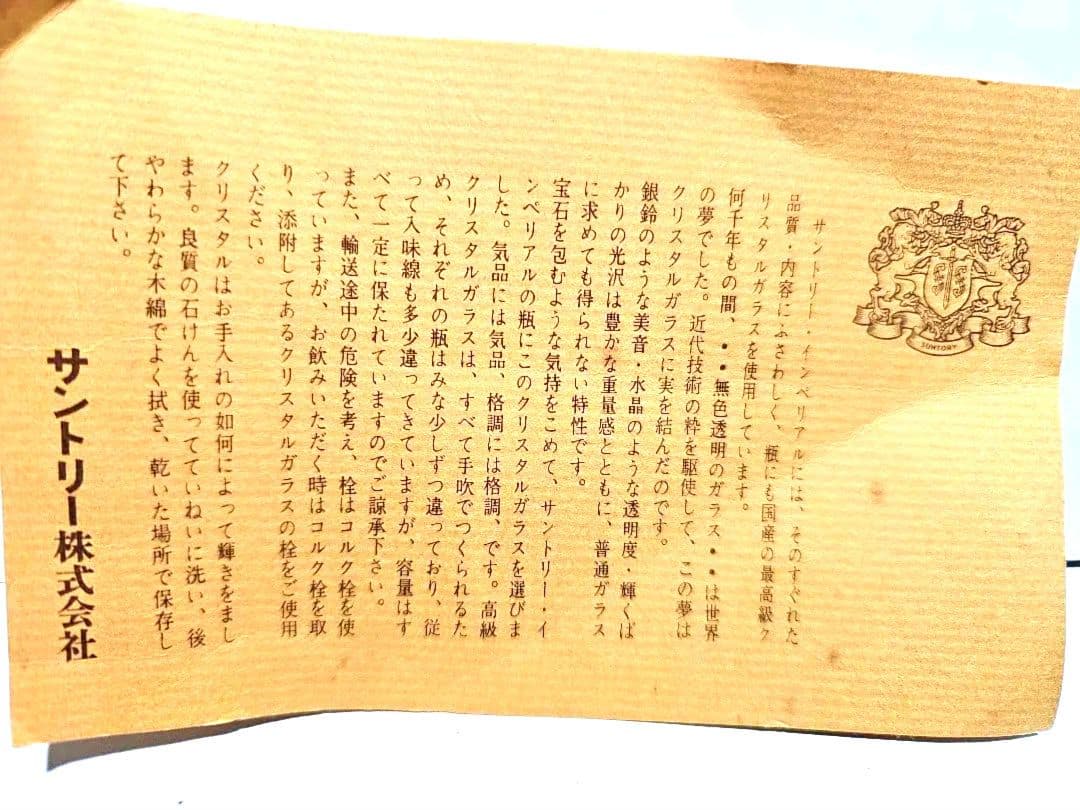 SUNTORY
サントリー・インペリアルには、そのすぐれた
品質・内容にふさわしく、瓶にも国産の最高級ク
リスタルガラスを使用しています。
何千年もの間、・・無色透明のガラス・・は世界
の夢でした。近代技術の粋を駆使して、この夢は
クリスタルガラスに実を結んだのです。
銀鈴のような美音・水晶のような透明度・輝くば
かりの光沢は豊かな重量感とともに、普通ガラス
に求めても得られない特性です。
宝石を包むような気持をこめて、サントリー・イ
ンペリアルの瓶にこのクリスタルガラスを選びま
した。気品には気品、格調には格調、です。高級
クリスタルガラスは、すべて手吹でつくられるた
め、それぞれの瓶はみな少しずつ違っており、従
って入味線も多少違ってきていますが、容量はす
べて一定に保たれていますのでご諒承下さい。
また、輸送途中の危険を考え、栓はコルク栓を使
っていますが、お飲みいただく時はコルク栓を取
り、添附してあるクリスタルガラスの栓をご使用
ください。
クリスタルはお手入れの如何によって輝きをまし
ます。良質の石けんを使ってていねいに洗い、後
やわらかな木綿でよく拭き、乾いた場所で保存し
て下さい。
サントリー株式会社